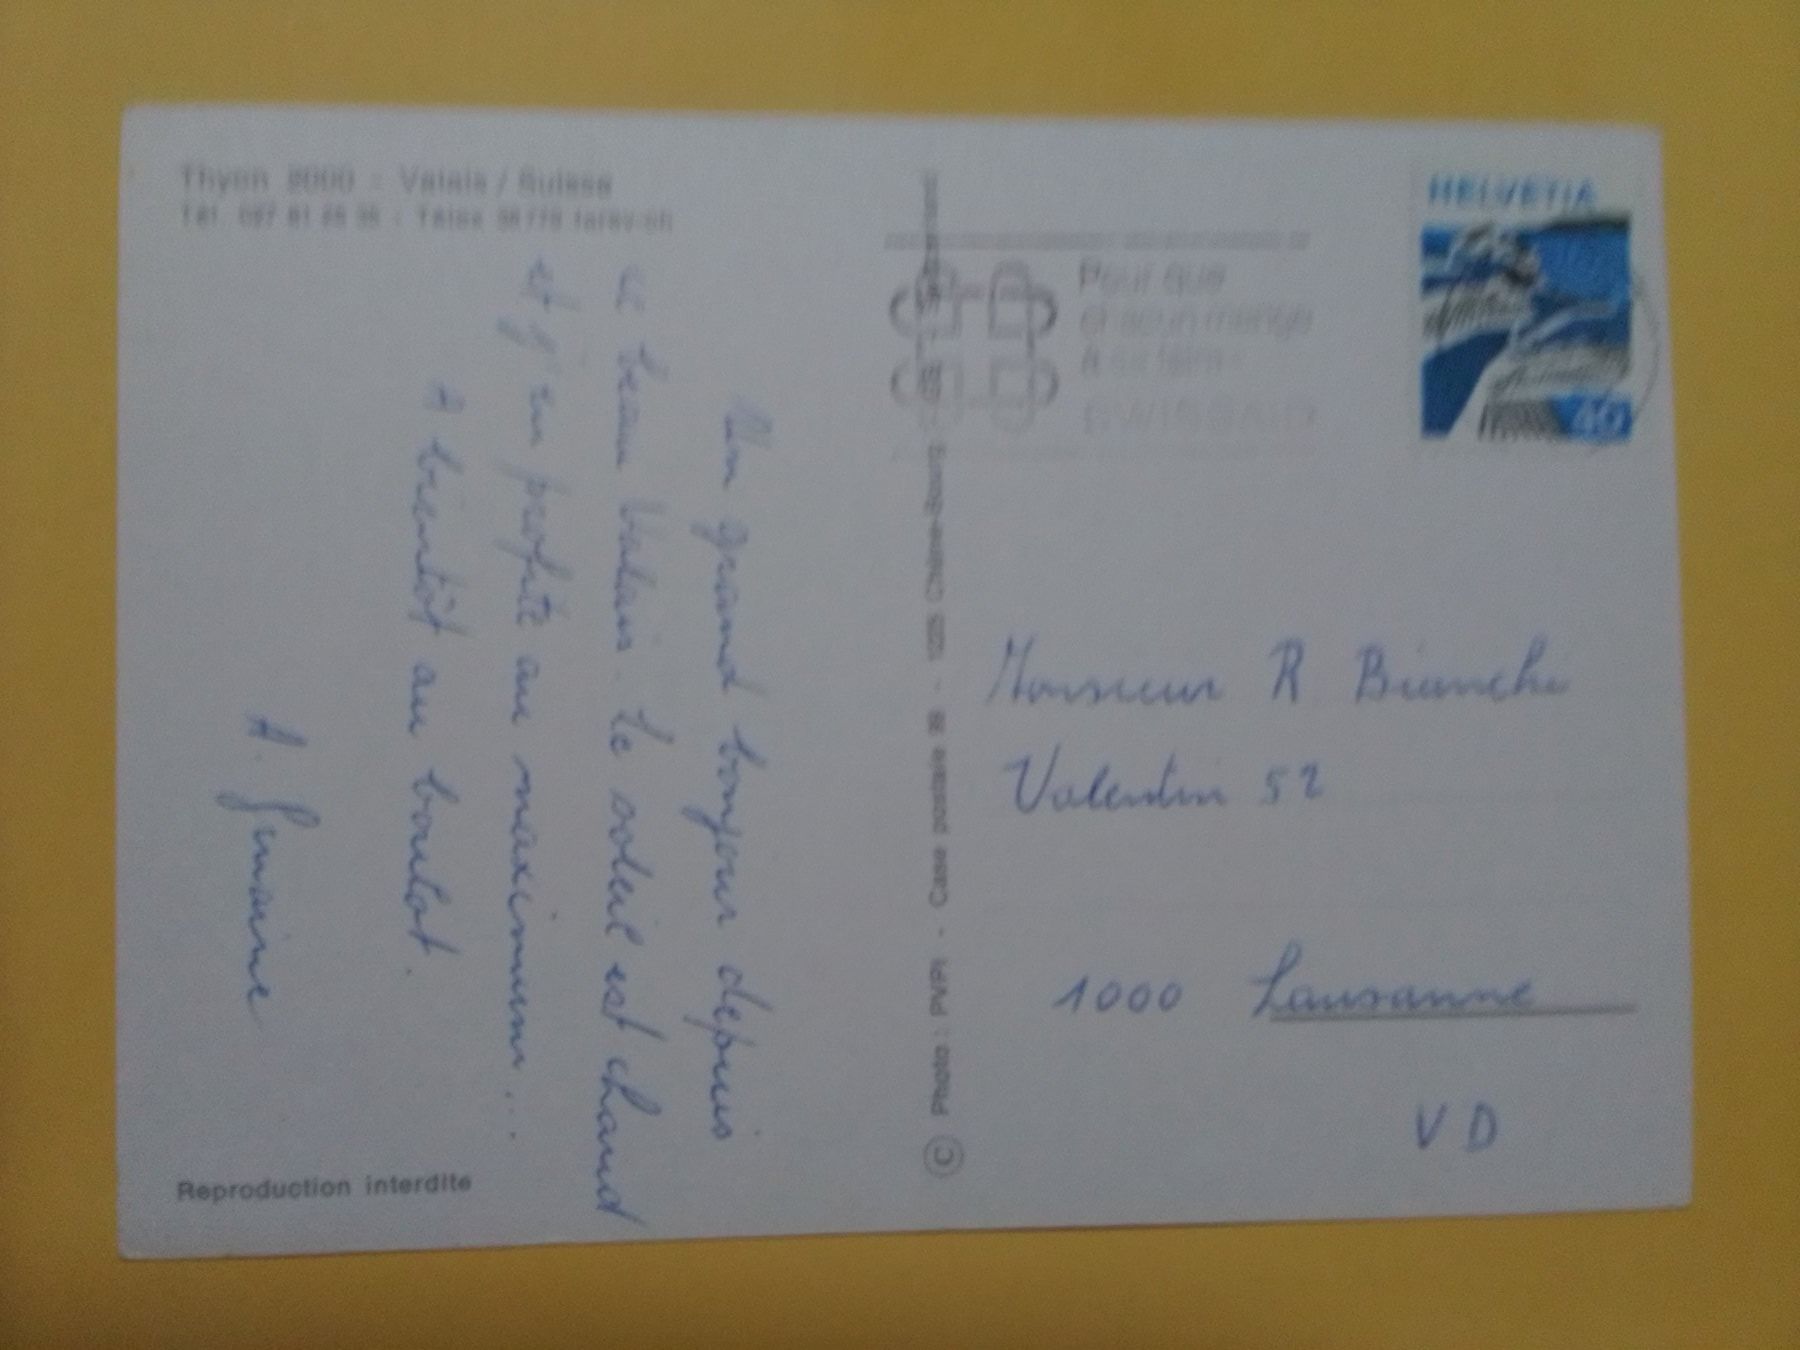 Thyon 2000 - Valais / Suisse
Tél. 027 81
Un grand bonjour depuis
ce beau Valais. Le soleil est chaud
et j'en profite au maximum...
A bientôt au boulot.
A. Germaine
Reproduction interdite
© Photo: PAPI - Carte postale SE - 1920 Châble-Bagnes
Pour que
chacun mange
à sa faim
SWISSAID
HELVETIA
40
Monsieur R Bianchi
Valentin 52
1000 Lausanne
VD